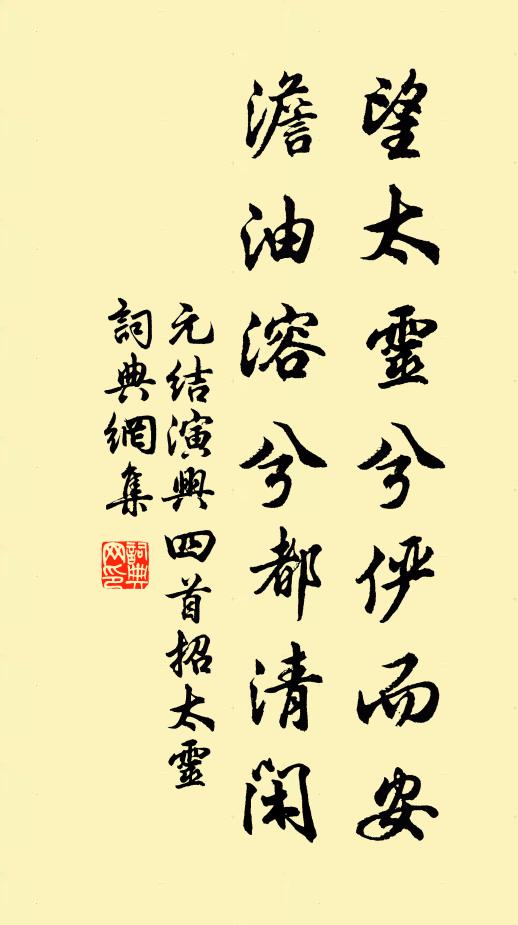 望太靈兮俨而安
澹油溶兮都清閑
元結演興四首招太靈
詞典網集
詞典網印